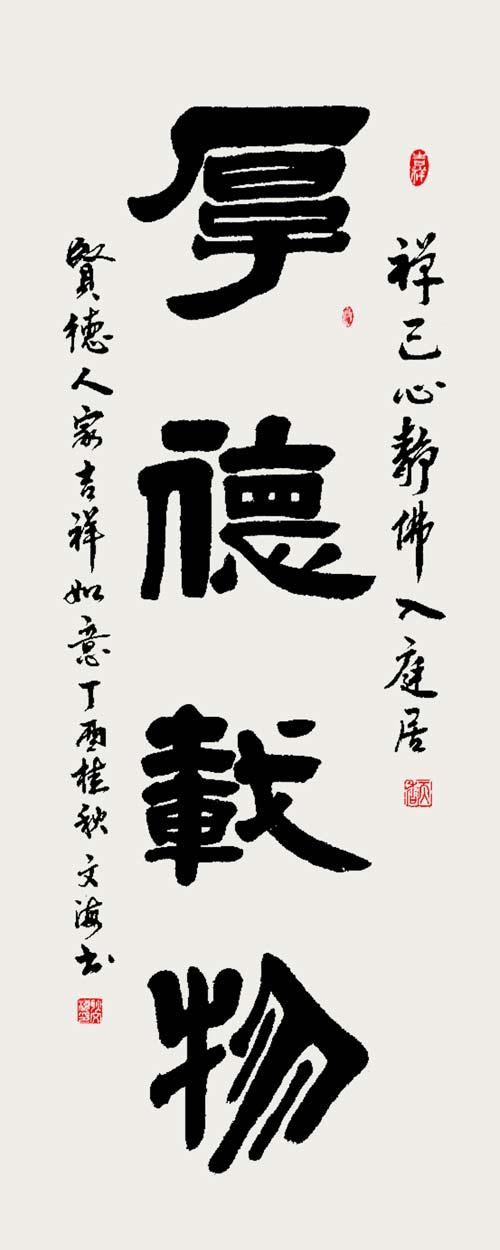 吉祥
禅己心静佛入庭居
厚德載物
賢德人家吉祥如意丁酉桂秋文海书